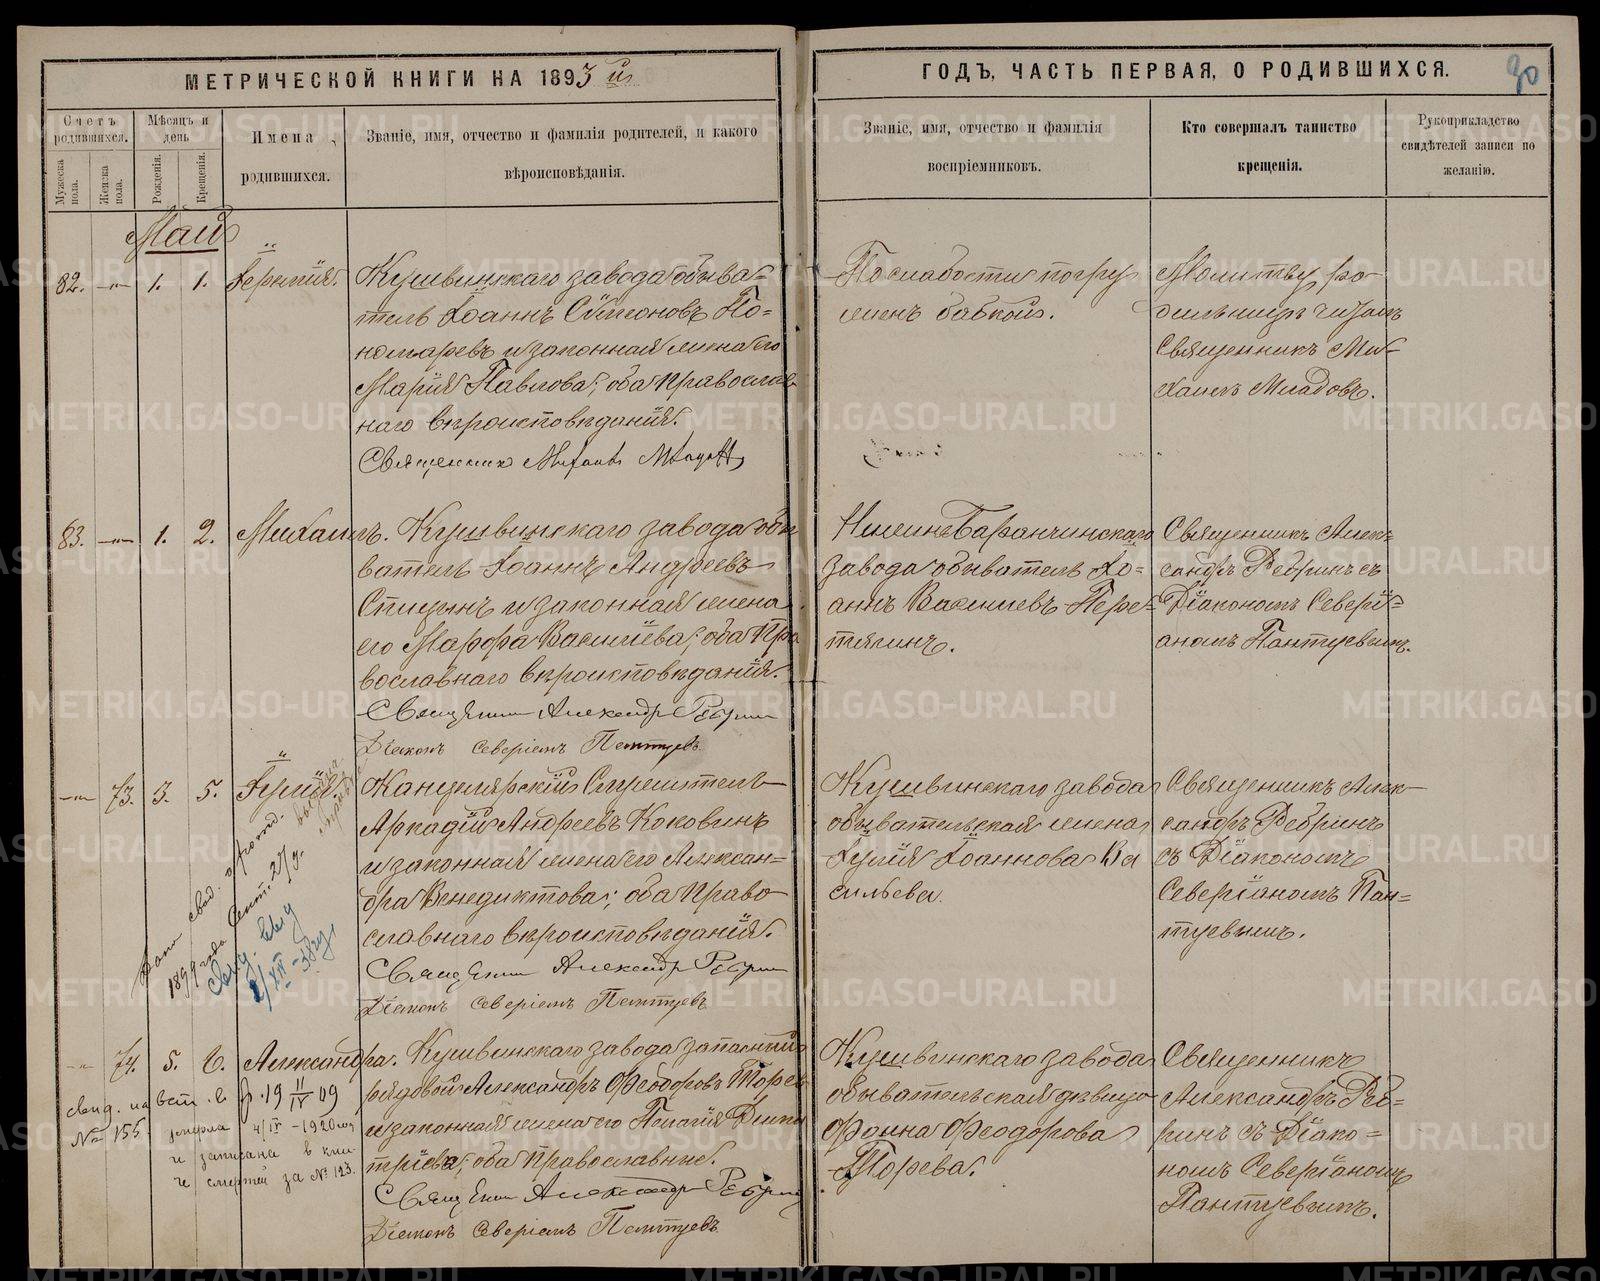 МЕТРИЧЕСКОЙ КНИГИ НА 1893й
ГОДЪ, ЧАСТЬ ПЕРВАЯ, О РОДИВШИХСЯ.
90
Счетъ родившихся.
Мужеска пола.
Женска пола.
Мѣсяцъ и день
Рожденія.
Крещенія.
Имена родившихся.
Званіе, имя, отчество и фамилія родителей, и какого
вѣроисповѣданія.
Званіе, имя, отчество и фамилія
воспріемниковъ.
Кто совершалъ таинство
крещенія.
Рукоприкладство
свидѣтелей записи по
желанію.
Май
82. —„— 1. 1.
Кушвинскаго завода обыва=
тель Іоаннъ Сѵмеоновъ По=
номаревъ и законная жена его
Марія Павлова; оба православ
наго вѣроисповѣданія.
Священникъ Михаилъ
По слабости погру
женъ бабкой.
Молитву ро
дильницѣ читалъ
Священникъ Ми-
хаилъ
83. —„— 1. 2. Михаилъ.
Кушвинскаго завода обы
ватель Іоаннъ Андреевъ
Спицынъ и законная жена
его Марѳа Васильева; оба пра
вославнаго вѣроисповѣданія.
Священникъ Александръ Ребринъ
Діаконъ Северіанъ Пантуевъ
Нижне Баранчинскаго
завода обыватель Іо=
аннъ Васильевъ Пере=
тягинъ.
Священникъ Алек
сандръ Ребринъ съ
Діакономъ Севері=
аномъ Пантуевымъ.
—„— 73. 3. 5. Іулія.
Канцелярскій Служитель
Аркадій Андреевъ Коковинъ
и законная жена его Алексан=
дра Венедиктова; оба право
славнаго вѣроисповѣданія.
Священникъ Александръ Ребринъ
Діаконъ Северіанъ Пантуевъ
Кушвинскаго завода
обывательская жена
Іулія Іоаннова Ва
сильева.
Священникъ Алек
сандръ Ребринъ
съ Діакономъ
Северіаномъ Пан=
туевымъ.
1899 года Сент. 27
—„— 74. 5. 6. Александра.
Кушвинскаго завода запасный
рядовой Александръ Ѳеодоровъ Торев
и законная жена его Пелагія Дими
тріева; оба православные.
Священникъ Александръ Ребринъ
Діаконъ Северіанъ Пантуевъ
Кушвинскаго завода
обывательская дѣвица
Ѳеодорова
Торева.
Священникъ
Александръ Реб=
ринъ съ Діако=
номъ Северіаномъ
Пантуевымъ.
№ 155
умерла 4/IV - 1920 год
и записана в кни-
ге смертей за № 123.
METRIKI.GASO-URAL.RU